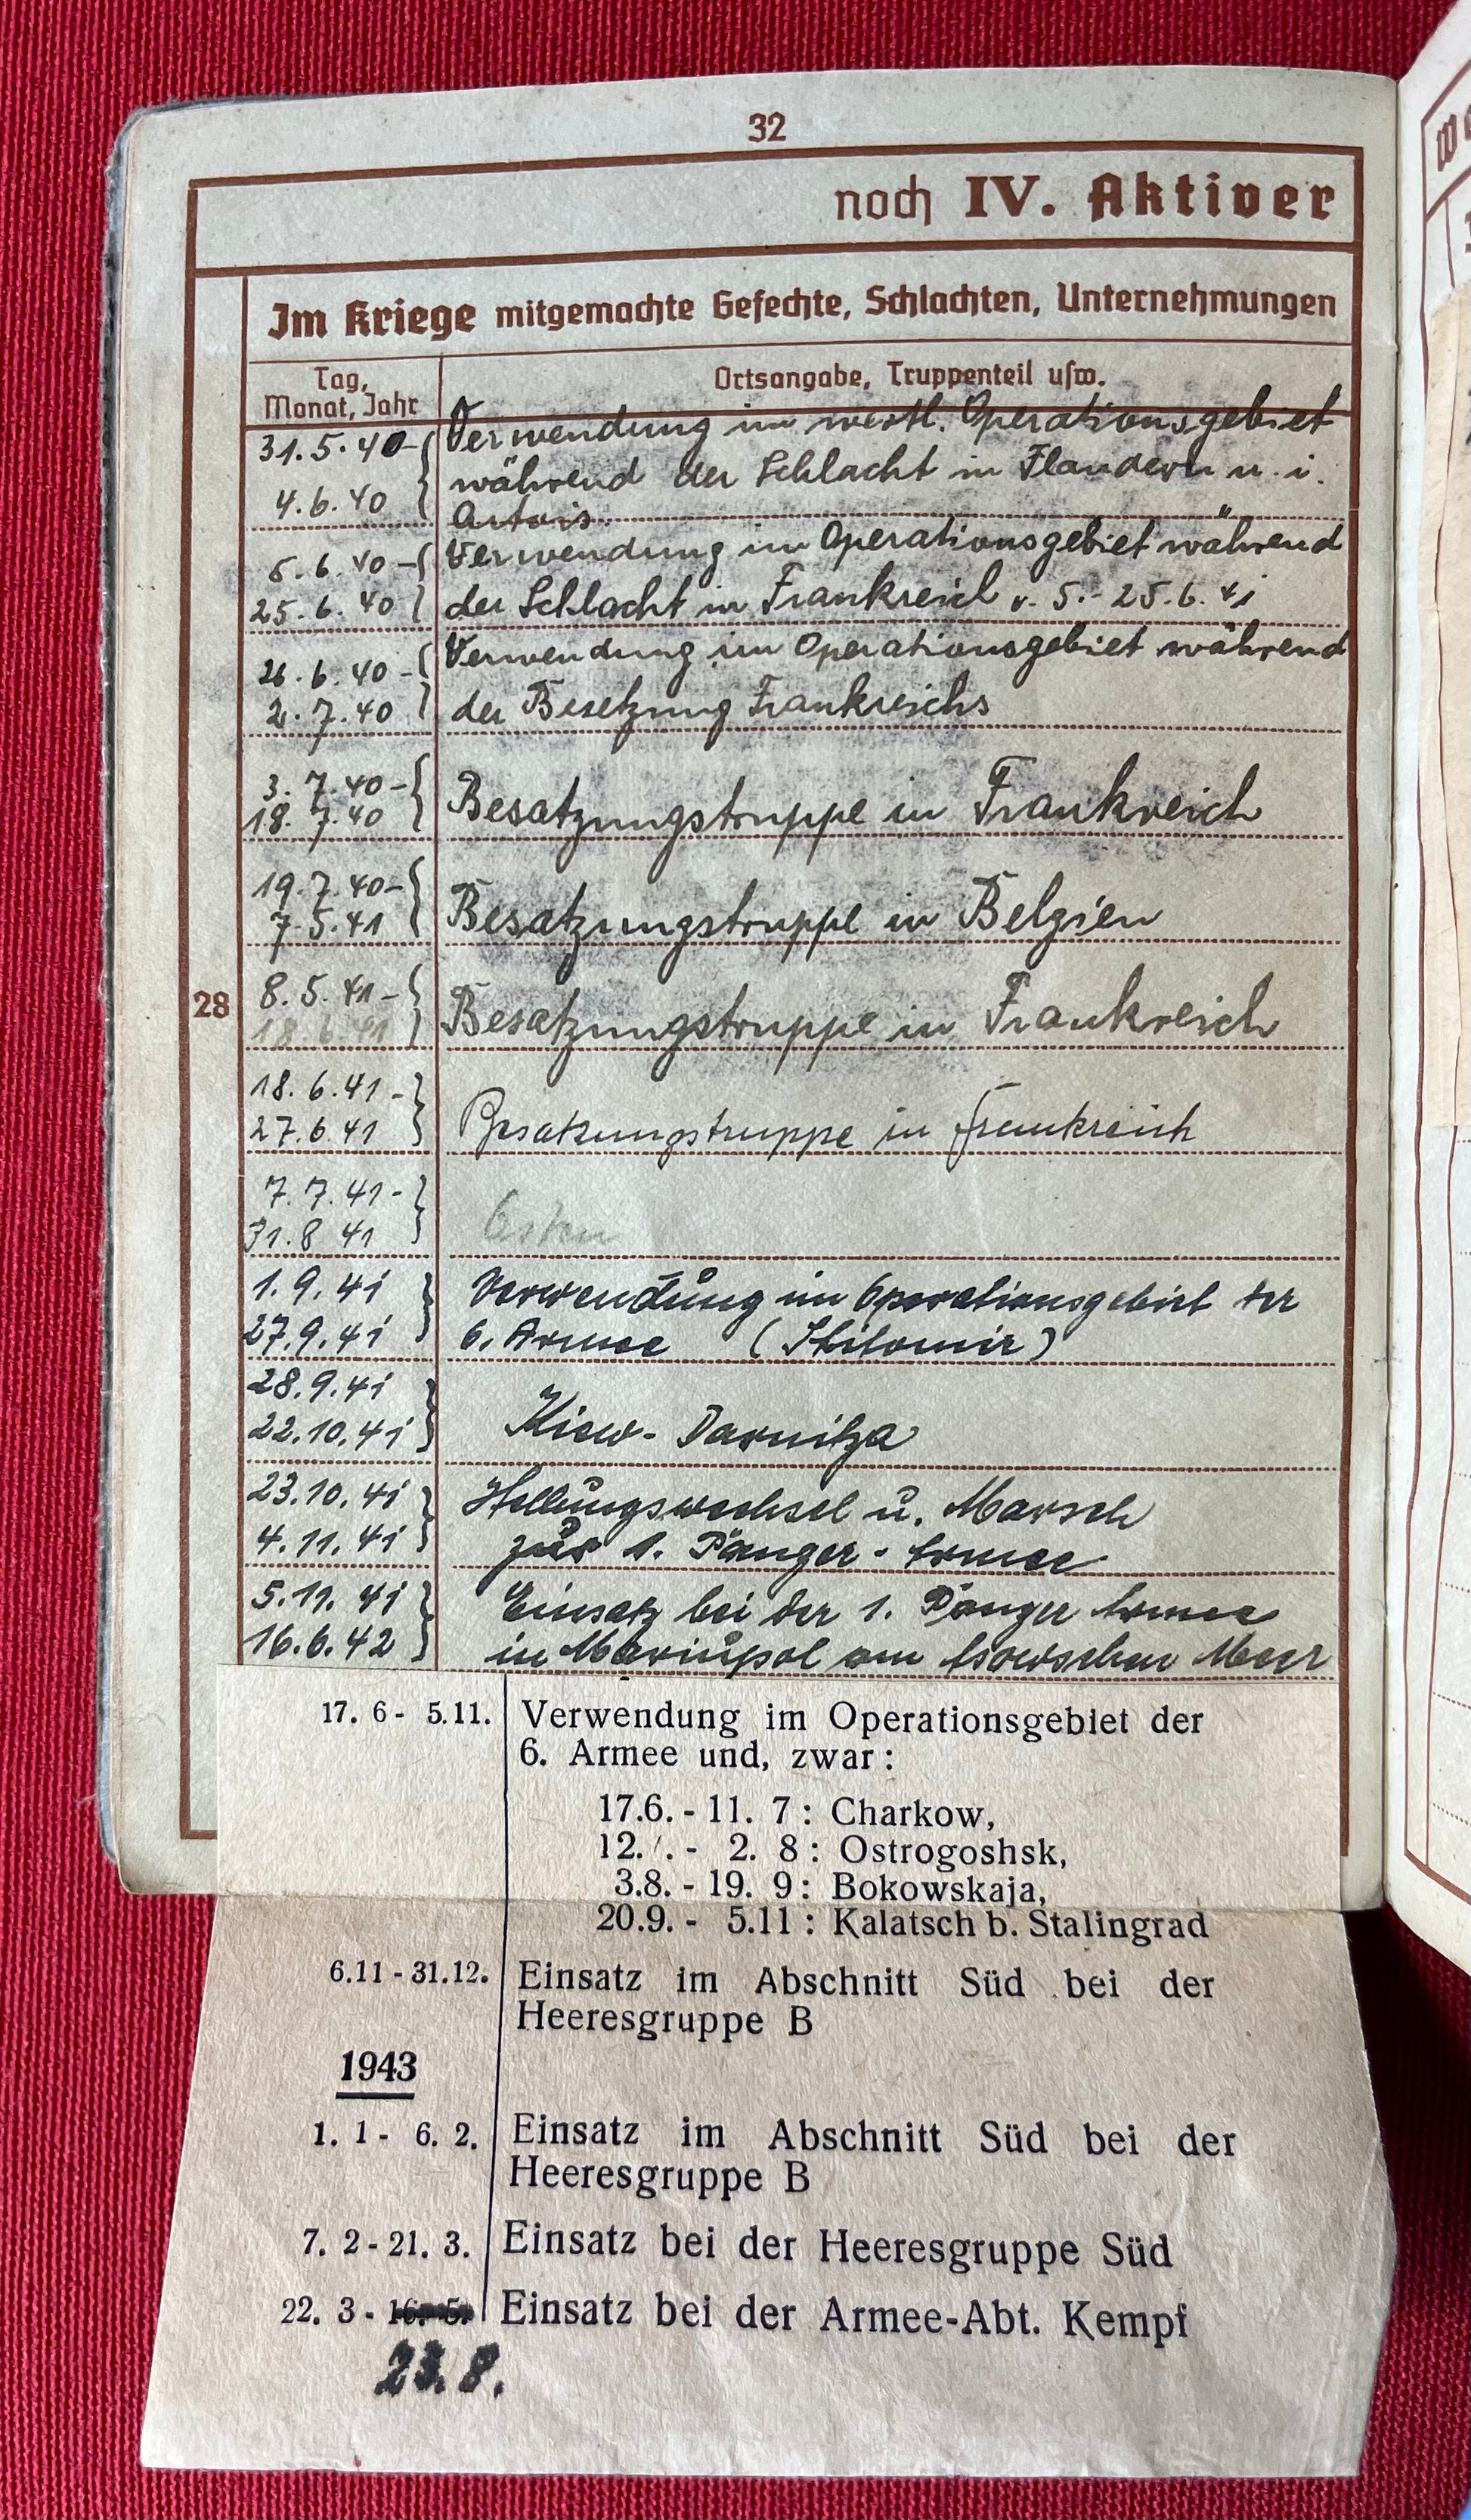 32
noch IV. Aktiver
Im Kriege mitgemachte Gefechte, Schlachten, Unternehmungen
Tag,
Monat, Jahr
Ortsangabe, Truppenteil usw.
31.5.40-
4.6.40
Verwendung im westl. Operationsgebiet
während der Schlacht in Flandern u. i.
Artois
5.6.40-
25.6.40
Verwendung im Operationsgebiet während
der Schlacht in Frankreich v. 5.-25.6.
26.6.40-
2.7.40
Verwendung im Operationsgebiet während
der Besetzung Frankreichs
3.7.40-
18.7.40
Besatzungstruppe in Frankreich
19.7.40-
7.5.41
Besatzungstruppe in Belgien
28
8.5.41-
18.6.41
Besatzungstruppe in Frankreich
18.6.41-
27.6.41
Besatzungstruppe in Frankreich
7.7.41-
31.8.41
Osten
1.9.41
27.9.41
Verwendung im Operationsgebiet der
6. Armee (Shitomir)
28.9.41
22.10.41
Kiew-Darnitza
23.10.41
4.11.41
Stellungswechsel u. Marsch
zur 1. Panzer-Armee
5.11.41
16.6.42
Einsatz bei der 1. Panzer Armee
in Mariupol am Asowschen Meer
17. 6 - 5.11.
Verwendung im Operationsgebiet der
6. Armee und, zwar:
17.6. - 11. 7 : Charkow,
12. . - 2. 8 : Ostrogoshsk,
3.8. - 19. 9 : Bokowskaja,
20.9. - 5.11 : Kalatsch b. Stalingrad
6.11 - 31.12.
Einsatz im Abschnitt Süd bei der
Heeresgruppe B
1943
1. 1 - 6. 2.
Einsatz im Abschnitt Süd bei der
Heeresgruppe B
7. 2 - 21. 3.
Einsatz bei der Heeresgruppe Süd
22. 3 - 16. 5.
Einsatz bei der Armee-Abt. Kempf
23.8.